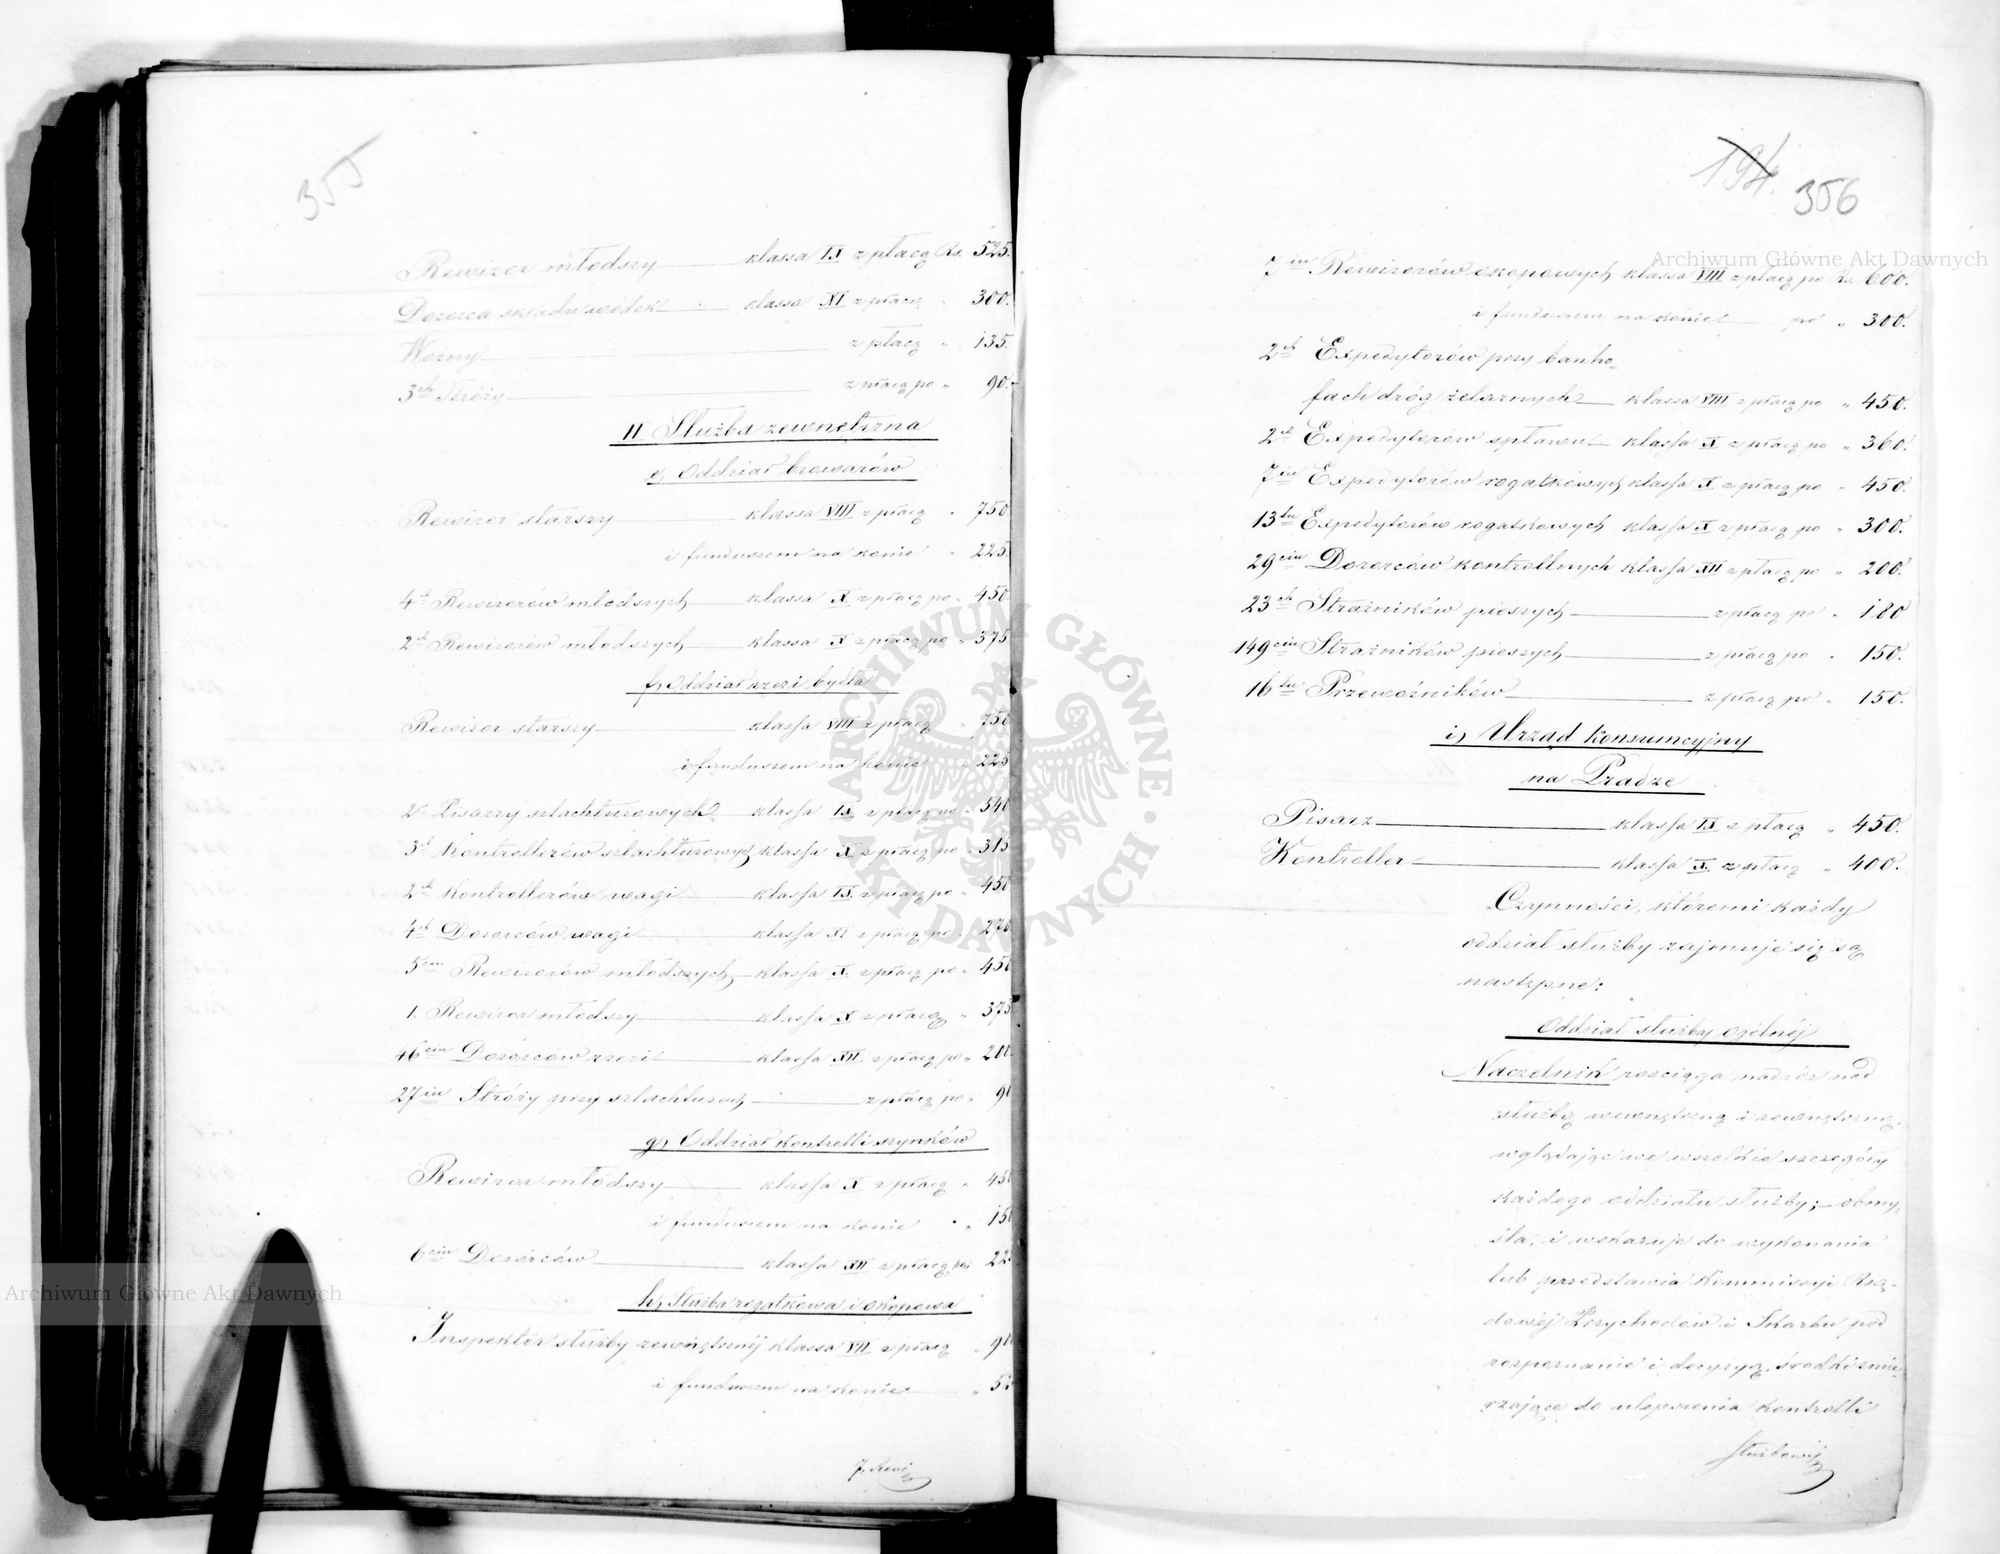 355
Rewizor młodszy klassa IX z płacą Rs. 525.
Dozorca składu wódek classa XI z płacą " 300.
Woźny z płacą " 135.
3ch Stróży z płacą po " 90.
II Służba zewnętrzna
e, Oddział browarów
Rewizor starszy klassa VIII z płacą " 750
i funduszem na konie " 225.
4ch Rewizorów młodszych klassa X z płacą po " 450.
2ch Rewizorów młodszych klassa X z płacą po " 375
f, Oddział rzezi bydła
Rewizor starszy klassa VIII z płacą " 750
i funduszem na konie " 225
2ch Pisarzy szlachtuzowych klassa IX z płacą po " 540
3ch Kontrollerów szlachtuzowych klassa X z płacą po " 315
2ch Kontrollerów wagi klassa IX z płacą po " 450
4ch Dozorców wagi klassa XI z płacą po " 270
5ciu Rewizorów młodszych klassa X. z płacą po " 450
1. Rewizor młodszy klassa X z płacą " 375
46ciu Dozorców rzezi klassa XII z płacą po " 200.
27iu Stróży przy szlachtuzach z płacą po " 90
g, Oddział kontrolli szynków
Rewizor młodszy klassa X z płacą " 450
i funduszem na konie " 150
6ciu Dozorców klassa XII z płacą po 22
h, Służba rogatkowa i okopowa
Inspektor służby zewnętrznéj klassa VII z płacą " 90
i funduszem na konie " 5
7. Rewi
194. 356
7iu Rewizorów okopowych klassa VIII z płacą po Rs. 600.
i funduszem na konie po " 300.
2ch Expedytorów przy banho-
fach dróg żelaznych klassa VIII z płacą po " 450.
2ch Expedytorów spławu klassa X z płacą po " 360.
7iu Expedytorów rogatkowych klassa X z płacą po " 450.
13tu Expedytorów rogatkowych klassa X z płacą po " 300.
29ciu Dozorców kontrollnych klassa XII z płacą po " 200.
23ch Strażników pieszych z płacą po " 180
149ciu Strażników pieszych z płacą po " 150.
16tu Przewoźników z płacą po " 150.
i, Urząd konsumcyjny
na Pradze
Pisarz klassa IX z płacą " 450.
Kontroller klassa X z płacą " 400.
Czynności, któremi każdy
oddział służby zajmuje się są
następne:
Oddział służby ogólnéj
Naczelnik rościąga nadzór nad
służbą wewnętrzną i zewnętrzną,
wglądając we wszelkie szczegóły
każdego oddziału służby; obmy-
śla, i wskazuje do wykonania
lub przedstawia Kommissyi Rzą-
dowéj Przychodów i Skarbu pod
rozpoznanie i decyzyą, środki zmie-
rzające do ulepszenia kontrolli
służbowéj
Archiwum Główne Akt Dawnych
Archiwum Główne Akt Dawnych
ARCHIWUM GŁÓWNE AKT DAWNYCH